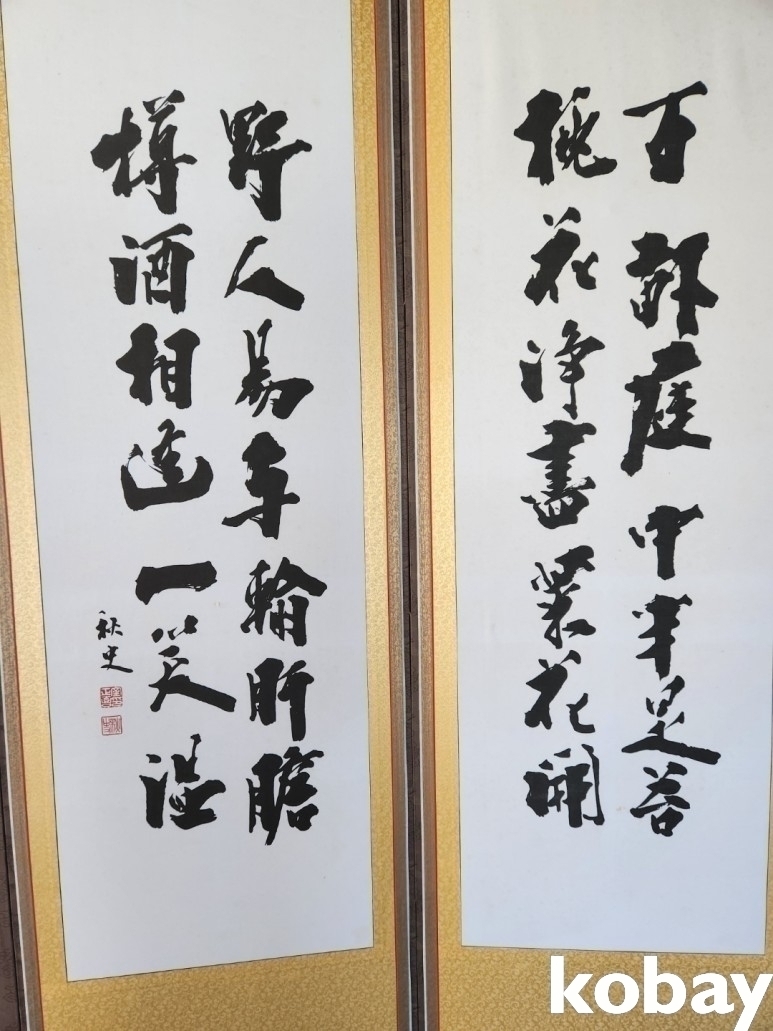 百畝庭中半是苔
桃花淨盡菜花開
野人易与輸肝膽
樽酒相逢一笑溫
秋史
kobay